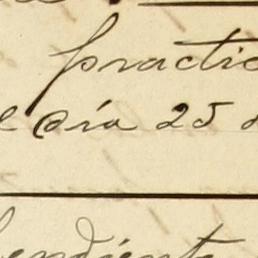 practic
el día 25 d
pendiente